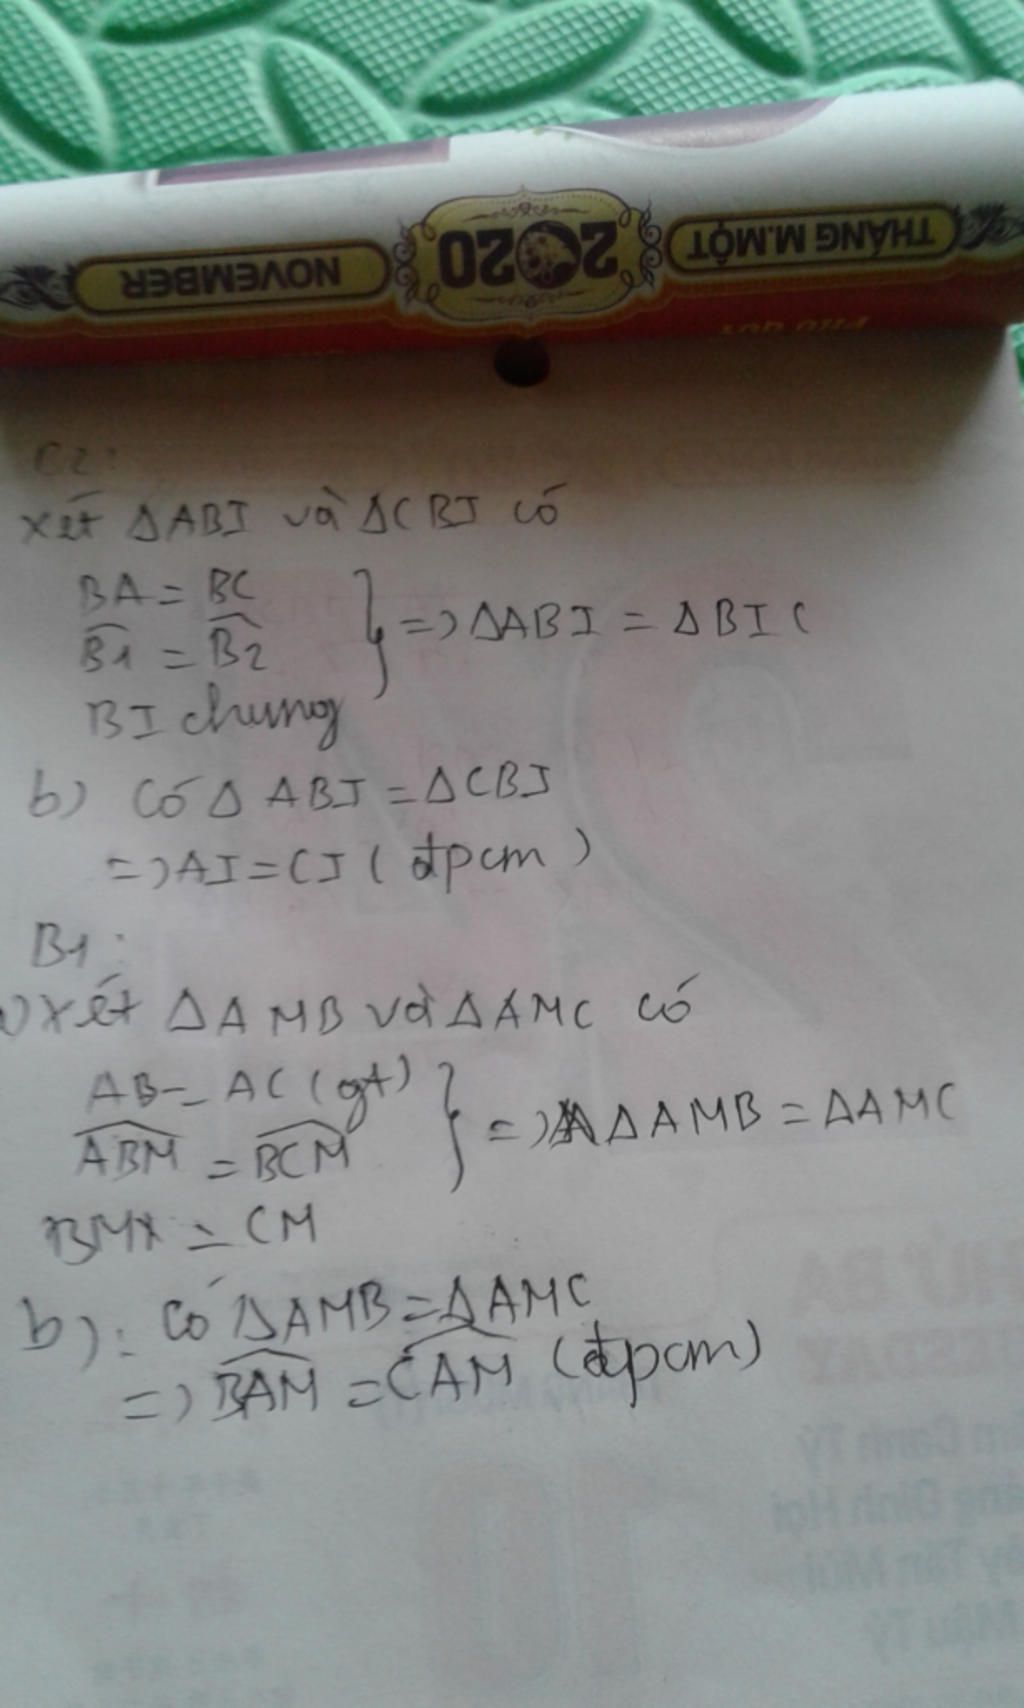 NOVEMBER 2020 THÁNG M.MỘT
C2:
Xét ΔABI và ΔCBI có
BA = BC
B1 = B2
} => ΔABI = ΔBIC
BI chung
b) Có Δ ABI = ΔCBI
=> AI = CI ( đpcm )
B1:
Xét ΔAMB và ΔAMC có
AB = AC (gt)
ABM = BCM
} => ΔAMB = ΔAMC
BM = CM
b): Có ΔAMB = ΔAMC
=> BAM = CAM (đpcm)